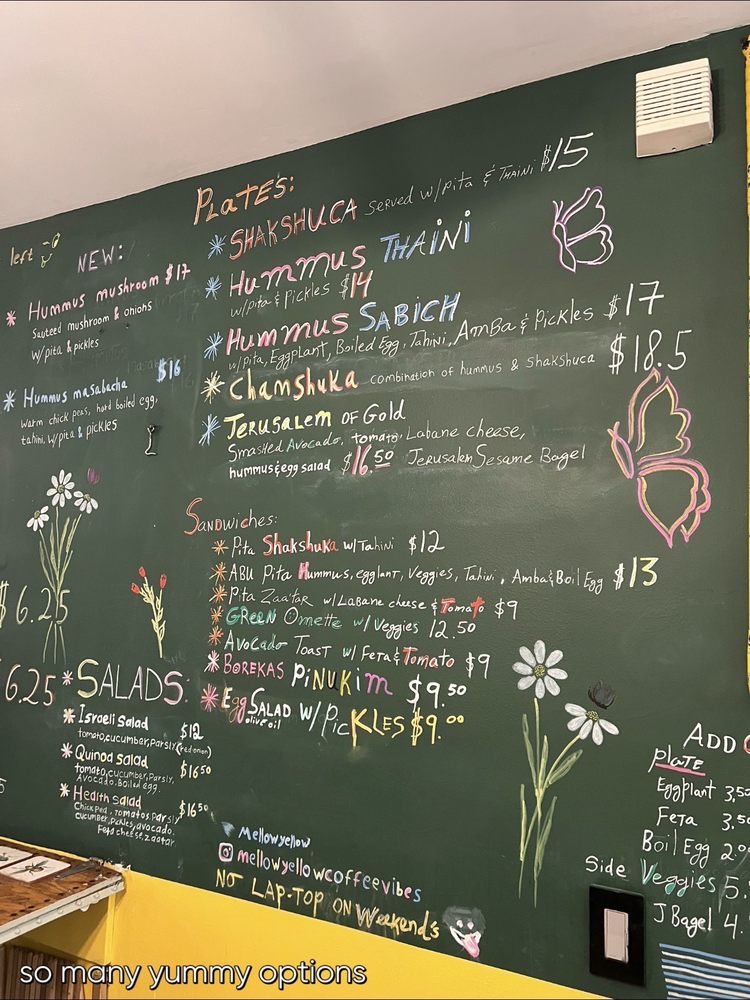 left
NEW:
Hummus mushroom $17
Sauteed mushroom & onions
w/pita & pickles
Hummus masabacha $16
Warm chick peas, hard boiled egg,
tahini, w/pita & pickles
$6.25
6.25
PLATES:
SHAKSHUCA served w/pita & THAINI $15
Hummus THAINI
w/pita & PICKLES $14
Hummus SABICH $17
w/pita, EggPlant, Boiled Egg, Tahini, AmBa & Pickles
Chamshuka combination of hummus & Shakshuca $18.5
JERUSALEM OF Gold
Smashed Avocado, tomato, Labane cheese,
hummus & egg salad $16.50 Jerusalem Sesame Bagel
SANDWICHES:
Pita Shakshuka w/Tahini $12
ABU Pita Hummus, egglant, Veggies, Tahini, Amba & Boil Egg $13
Pita Zaatar w/Labane cheese & Tomato $9
GREEN Omette w/ Veggies 12.50
AVOCADO TOAST w/ FETA & Tomato $9
BOREKAS PiNUKim $9.50
Egg SALAD w/ PicKLES $9.00
olive oil
SALADS:
Israeli Salad $12
tomato, cucumber, Parsly (red onion)
Quinoa salad $16.50
tomato, cucumber, Parsly,
Avocado, Boiled egg.
Health salad $16.50
Chick pea, tomatos, Parsly
cucumber, Pickles, avocado.
Feta cheese, zaatar
Mellowyellow
mellowyellowcoffeevibes
NO LAP-TOP ON Weekend's
ADD
PLATE
Eggplant 3.5
FETA 3.5
Boil Egg 2.0
Side Veggies 5.
J Bagel 4.
so many yummy options